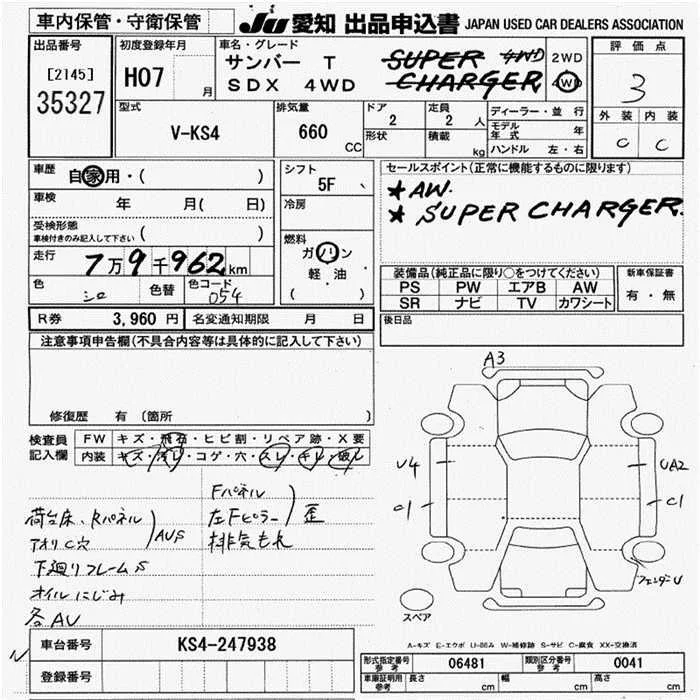 車内保管・守衛保管
JU 愛知 出品申込書 JAPAN USED CAR DEALERS ASSOCIATION
出品番号
[2145]
35327
初度登録年月
H07 月
車名・グレード
サンバー T SUPER 4WD
SDX 4WD CHARGER
2WD
4WD
評価点
3
外装 内装
C C
型式
V-KS4
排気量
660 CC
ドア
2
形状
定員
2 人
積載 kg
ディーラー・並行
モデル年式 年
ハンドル 左・右
車歴 自家用・( )
車検 年 月( 日)
受検形態
車検付きのみ記入して下さい ( )
走行 7万9千962km
色 シロ 色替 色コード 054
シフト
5F
冷房
燃料
ガソリン
軽油
( )
セールスポイント(正常に機能するものに限ります)
★AW.
★ SUPER CHARGER.
装備品(純正品に限り○をつけてください)
PS PW エアB AW
SR ナビ TV カワシート
新車保証書
有・無
R券 3,960 円 名変通知期限 月 日
後日品
注意事項申告欄(不具合内容等は具体的に記入して下さい)
修復歴 有(箇所 )
検査員記入欄
FW キズ・飛石・ヒビ割・リペア跡・X要
内装 キズ・汚レ・コゲ・穴・スレ・キレ・破レ
Fパネル
左Fピラー 歪
排気もれ
荷台床、Rパネル
アオリC穴 AUS
下廻りフレームS
オイルにじみ
各AU
A3
U4
UA2
C1
C1
フェンダーU
スペア
A-キズ E-エクボ U-凹み W-補修跡 S-サビ C-腐食 XX-交換済
車台番号 KS4-247938
登録番号
形式指定番号 参考 06481 類別区分番号 参考 0041
車庫証明用 参考 長さ cm 幅 cm 高さ cm